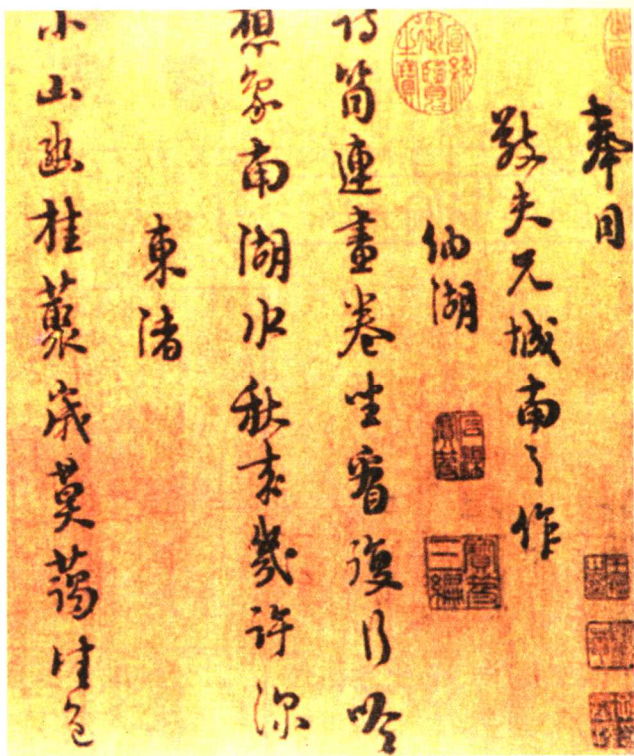 奉同
敬夫兄城南之作
納湖
詩筒連畫卷坐看復行吟
想象南湖水秋來幾許深
東渚
小山幽桂叢歲莫藹佳色
宣統御覽之寶
寶笈三編